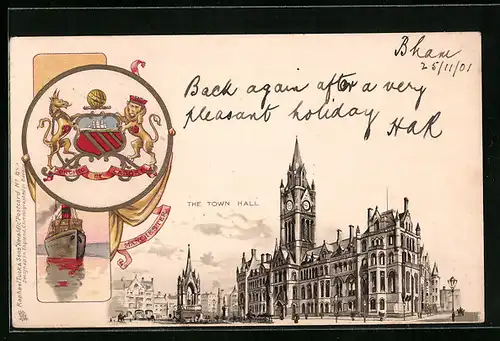 Bham
25/11/01
Back again after a very
pleasant holiday
THE TOWN HALL
MANCHESTER
Raphael Tuck & Sons' "Heraldic" Postcard No.